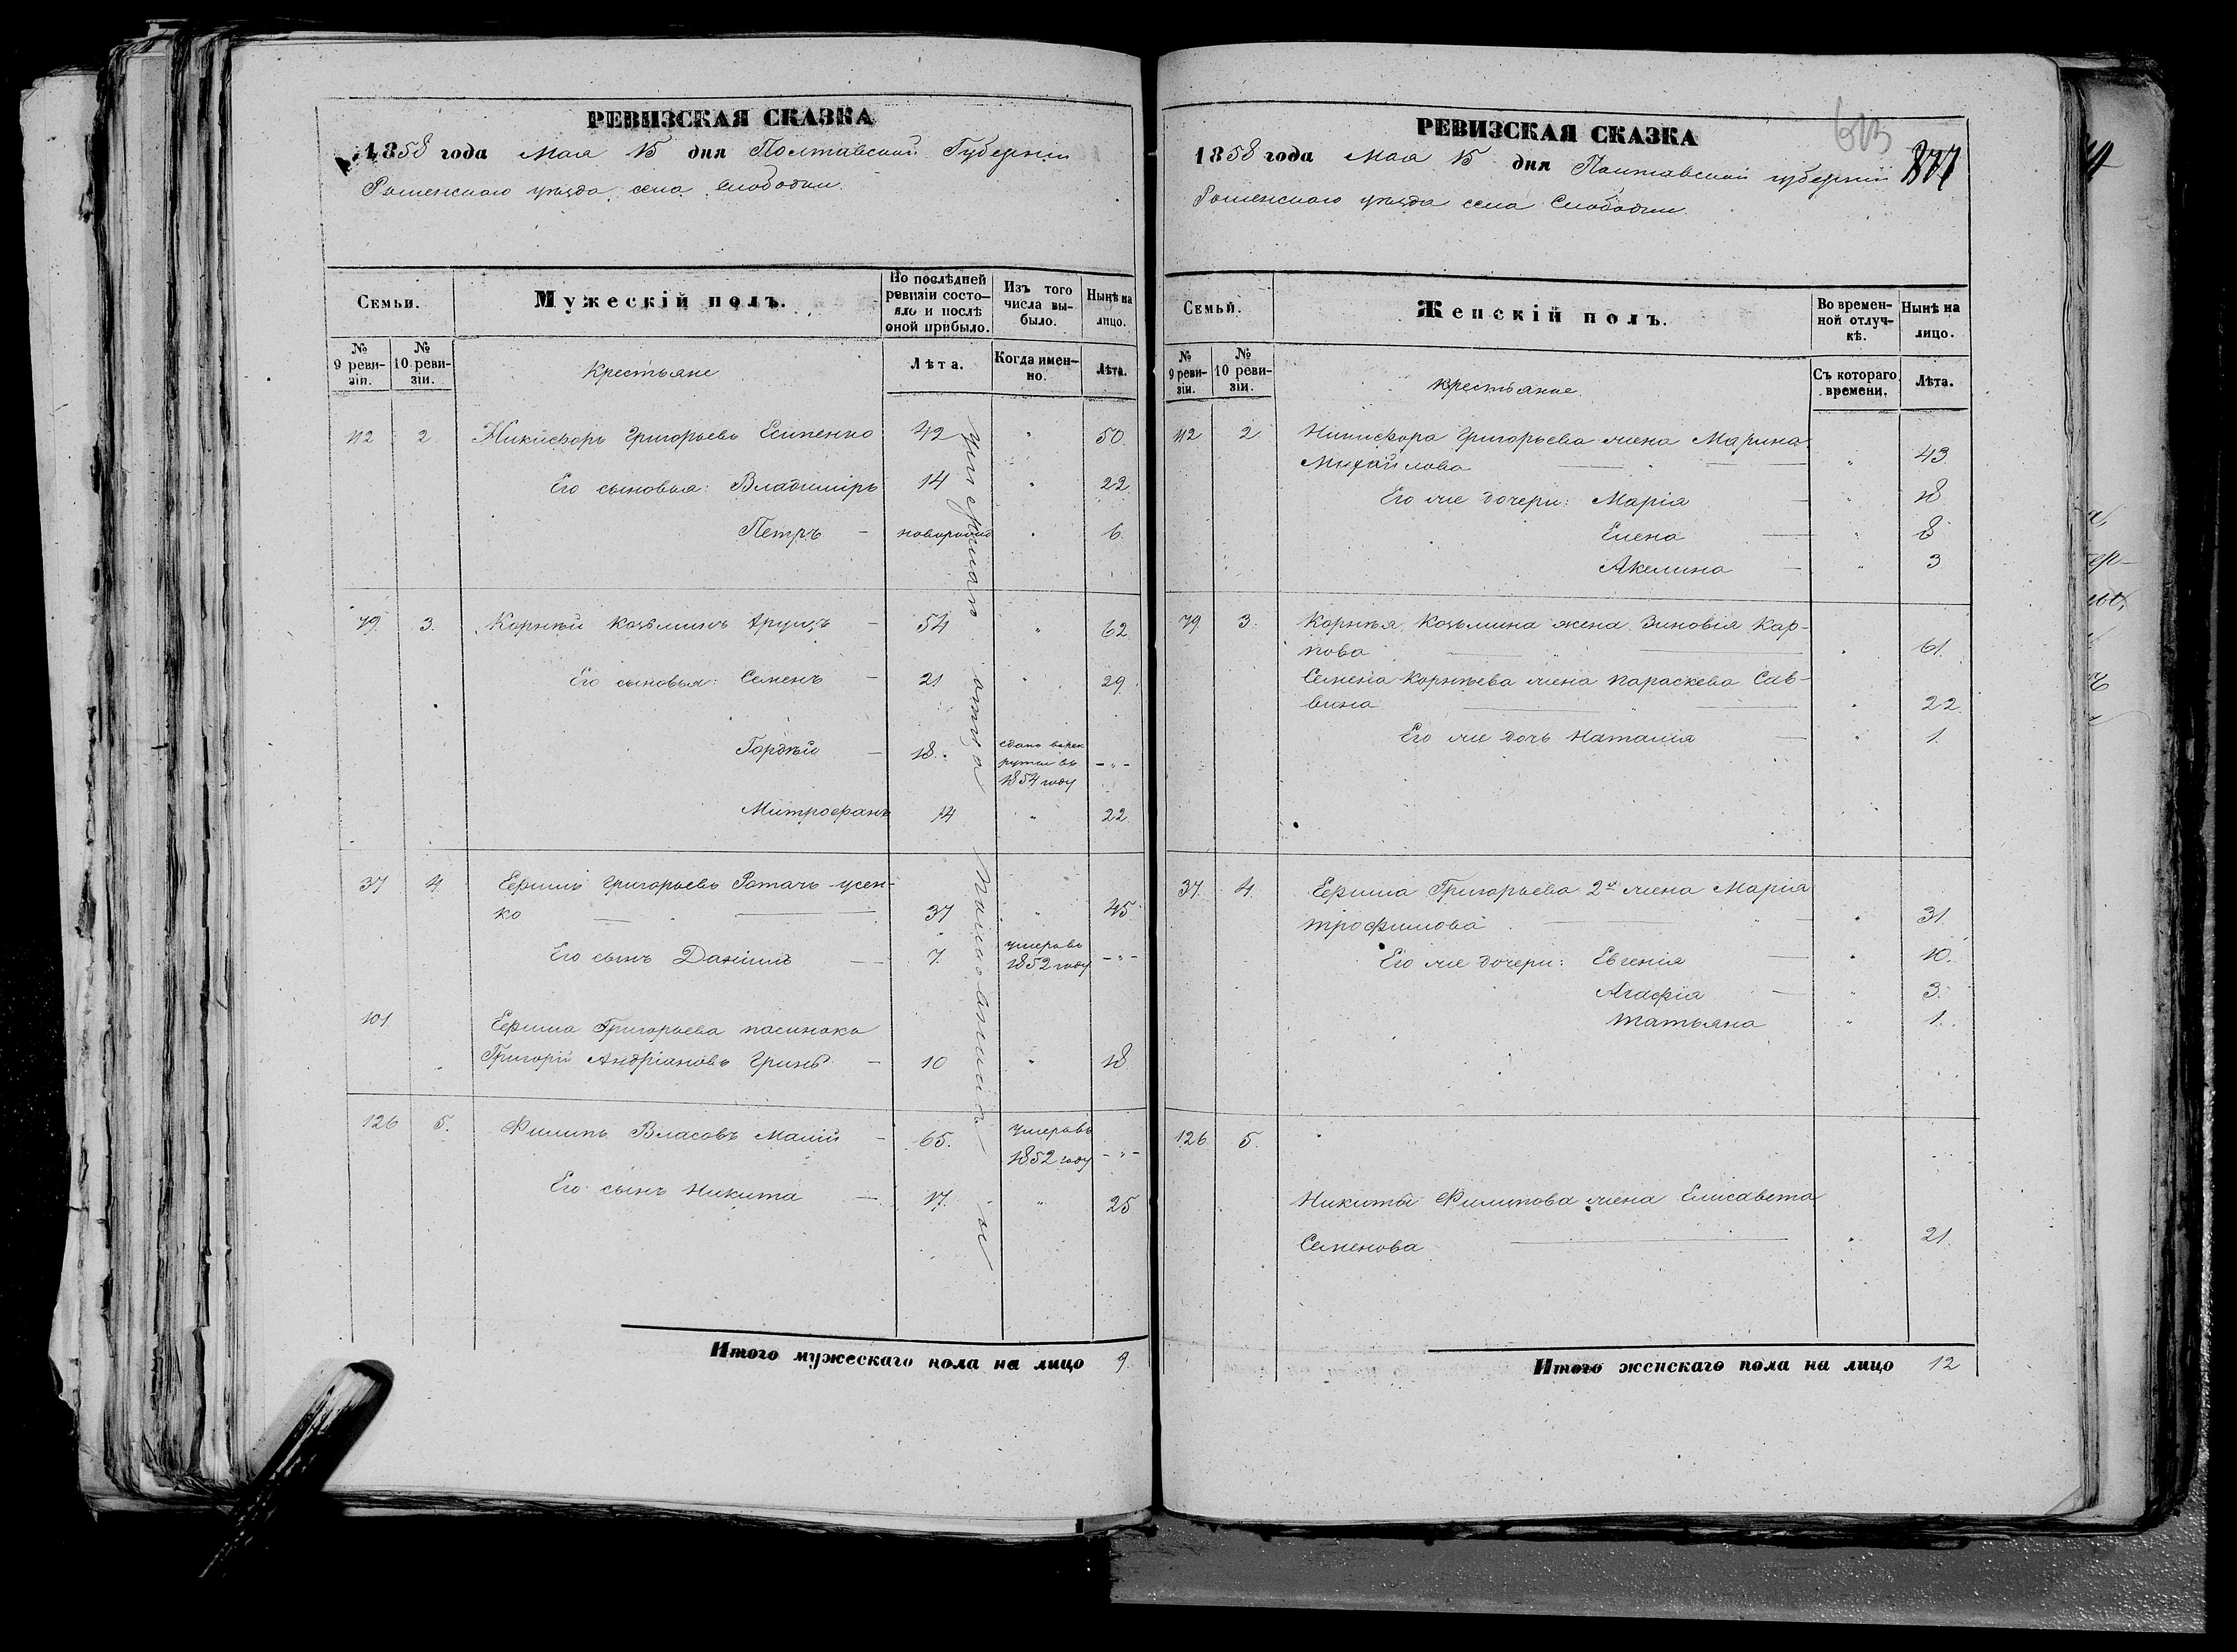 РЕВИЗСКАЯ СКАЗКА
1858 года Мая 15 дня Полтавской Губерніи
Роменскаго уѣзда, села Слободки.
Семьи.
Мужескій полъ.
По послѣдней ревизіи состояло и послѣ оной прибыло.
Изъ того числа выбыло.
Нынѣ на лицо.
№ 9 ревизіи.
№ 10 ревизіи.
Крестьяне
Лѣта.
Когда именно.
Лѣта.
112 2 Никифоръ Григорьевъ Есипенко 42 " 50.
Его сыновья: Владиміръ 14 " 22
Петръ — новорожд " 6.
79. 3. Корнѣй Козьминъ — 54 " 62
Его сыновья: Семенъ — 21 " 29.
Гордѣй — 18. сданъ въ рек
руты въ — " —
1854 году
Митрофанъ 14 " 22
37 4. Ефимъ Григорьевъ Ротачь-усен-
ко — " — 37 " 45.
Его сынъ Даніилъ — 7. умеръ въ
1852 году — " —
101 Ефима Григорьева пасинокъ
Григорій Андріановъ Гринь — 10 " 18
126 5. Филипъ Власовъ Малій — 65. умеръ въ
1852 году — " —
Его сынъ Никита — 17. " 25
Итого мужескаго пола на лицо 9.
РЕВИЗСКАЯ СКАЗКА
877
1858 года Мая 15 дня Полтавской губерніи
Роменскаго уѣзда села Слободки.
Семьи.
Женскій полъ.
Во временной отлучкѣ.
Нынѣ на лицо.
№ 9 ревизіи.
№ 10 ревизіи.
крестьяне.
Съ котораго времени.
Лѣта.
112 2 Никифора Григорьева жена Марина
Михайлова — " — " 43
Его же дочери: Марія — " 18
Елена — " 8
Акелина — " 3
79 3. Корнѣя Козьмина жена Зиновія Кар-
пова — " — " 61.
Семена Корнѣева жена Параскева Сав-
вина — " — " 22.
Его же дочь Наталія — " 1.
37. 4. Ефима Григорьева 2я жена Марія
Трофимова — " — " 31.
Его же дочери: Евгенія — " 10.
Агафія — " 3.
Татьяна " 1.
126 5.
Никиты Филипова жена Елисавета
Семенова — " 21.
Итого женскаго пола на лицо 12